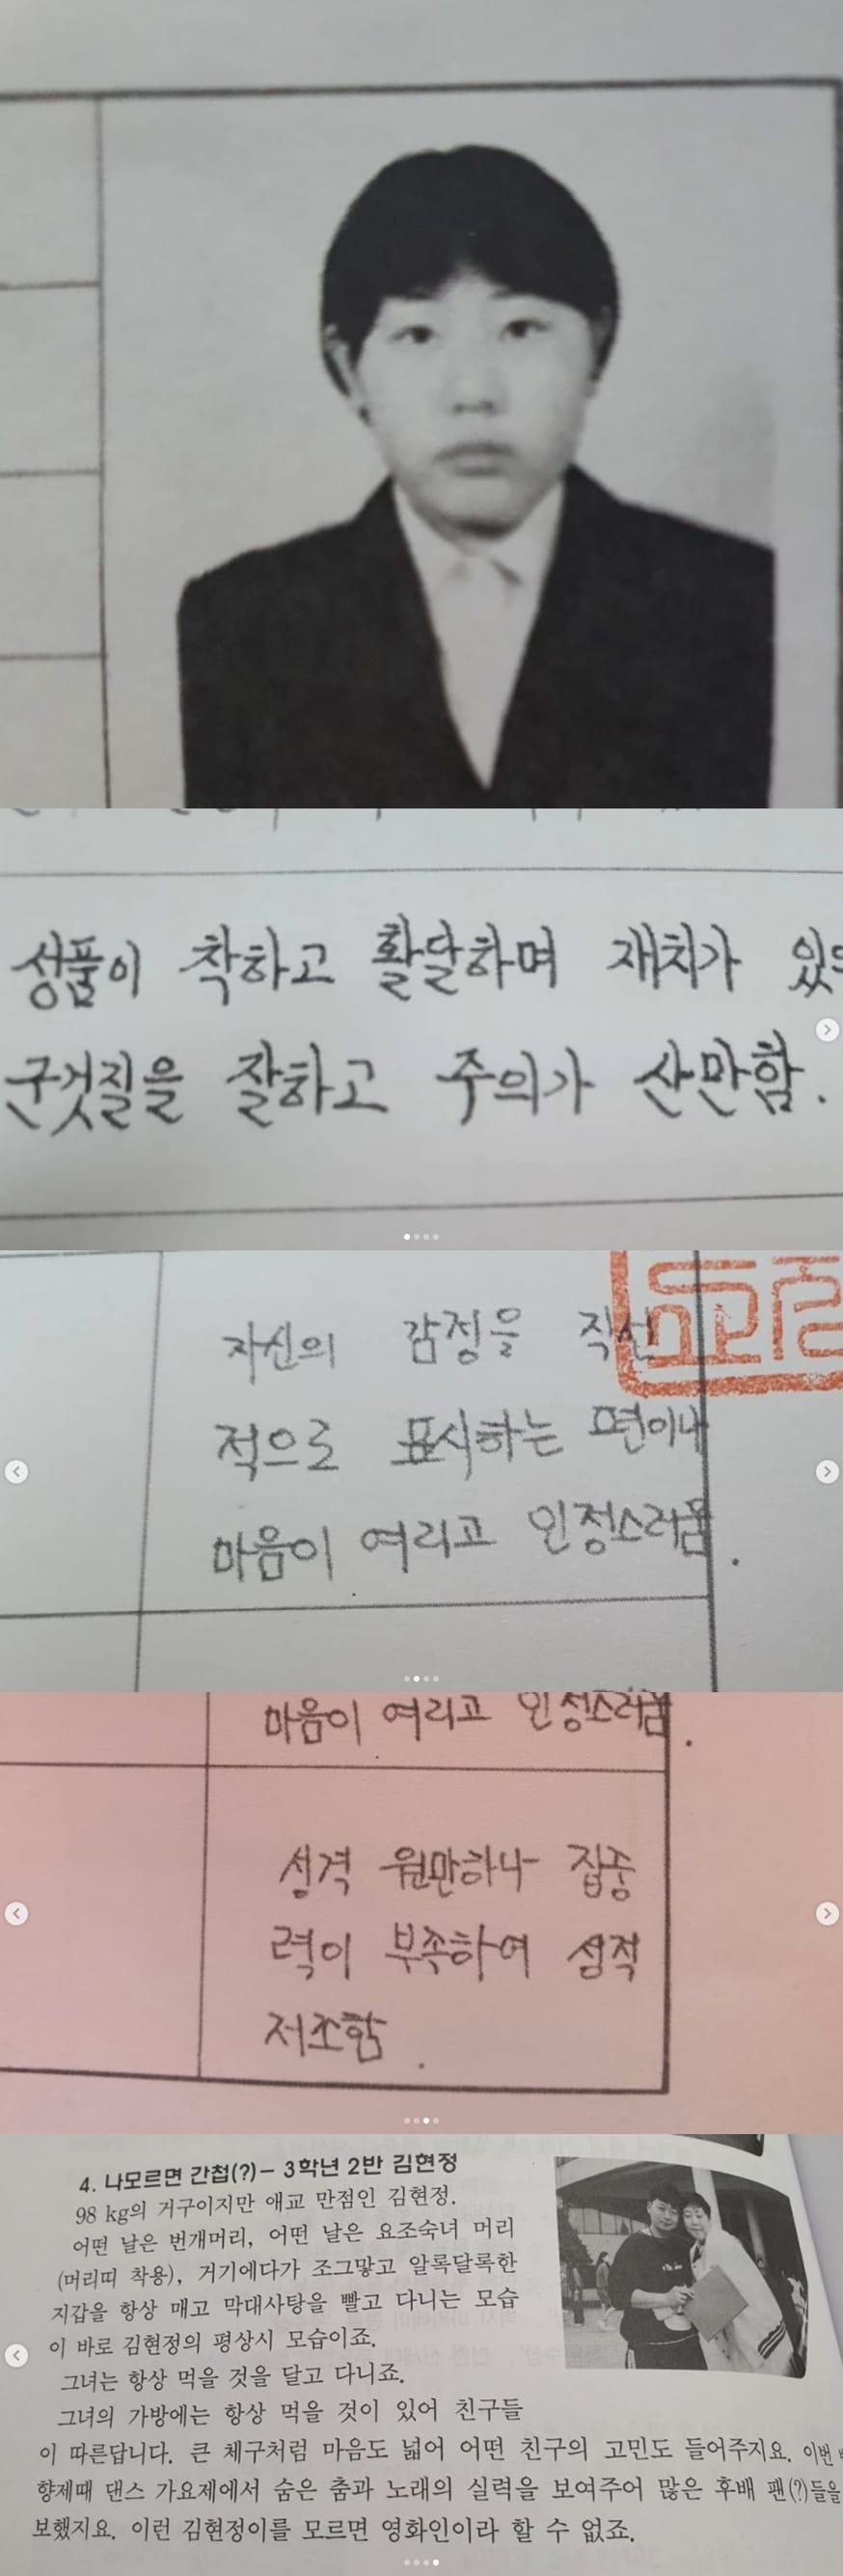 성품이 착하고 활달하며 재치가
군것질을 잘하고 주의가 산만함.
자신의 감정을 직선
적으로 표시하는 편이나
마음이 여리고 인정스러움.
마음이 여리고 인정스러움.
성격 원만하나 집중
력이 부족하여 성적
저조함.
4. 나모르면 간첩(?)- 3학년 2반 김현정
98 kg의 거구이지만 애교 만점인 김현정.
어떤 날은 번개머리, 어떤 날은 요조숙녀 머리
(머리띠 착용), 거기에다가 조그맣고 알록달록한
지갑을 항상 매고 막대사탕을 빨고 다니는 모습
이 바로 김현정의 평상시 모습이죠.
그녀는 항상 먹을 것을 달고 다니죠.
그녀의 가방에는 항상 먹을 것이 있어 친구들
이 따른답니다. 큰 체구처럼 마음도 넓어 어떤 친구의 고민도 들어주지요. 이번
향제때 댄스 가요제에서 숨은 춤과 노래의 실력을 보여주어 많은 후배 팬(?)들을
보했지요. 이런 김현정이를 모르면 영화인이라 할 수 없죠.